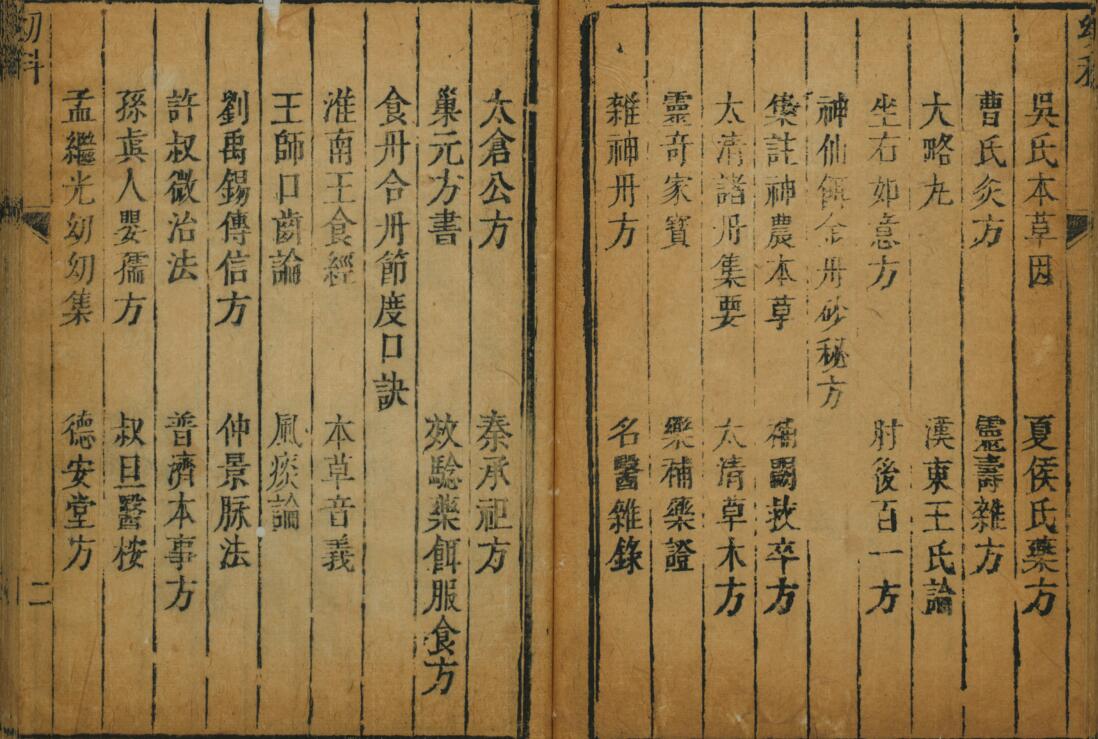 吳氏本草因　夏侯氏藥方
曹氏灸方　靈壽雜方
大略丸　漢東王氏論
坐右如意方　肘後百一方
神仙餌金丹砂秘方
集註神農本草　補闕救卒方
太清諸丹集要　太清草木方
靈奇家寳　藥補藥證
雜神丹方　名醫雜錄
太倉公方　秦承祖方
巢元方書　效驗藥餌服食方
食丹合丹節度口訣
淮南王食經　本草音義
王師口齒論　風痰論
劉禹錫傳信方　仲景脉法
許叔微治法　普濟本事方
孫真人嬰孺方　叔旦醫桉
孟繼光幼幼集　德安堂方
幼科
二